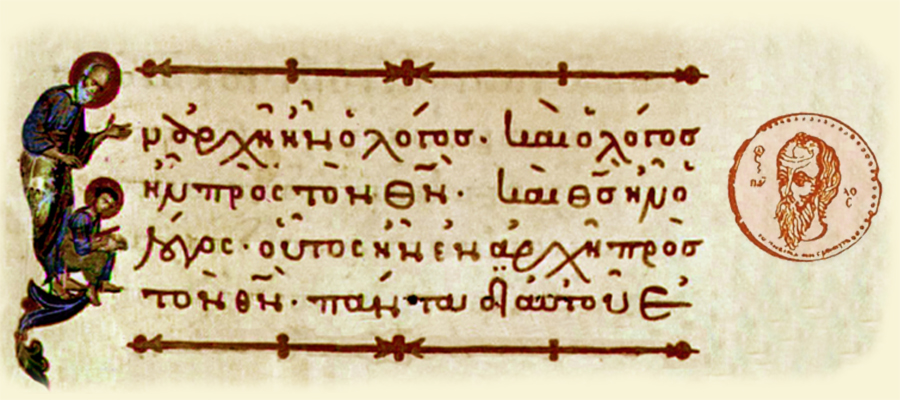 ν ἀρχῆ ἦν ὁ λόγος· καὶ ὁ λόγος
ἦν πρὸς τὸν θ̅ν̅· καὶ θ̅ς̅ ἦν ὁ
λόγος· οὗτος ἦν ἐν ἀρχῆ πρὸς
τὸν θ̅ν̅· πάντα δι αὐτοῦ ἐ